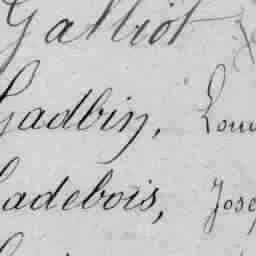 Galliot
Gadbin, Loui
adebois, Jose